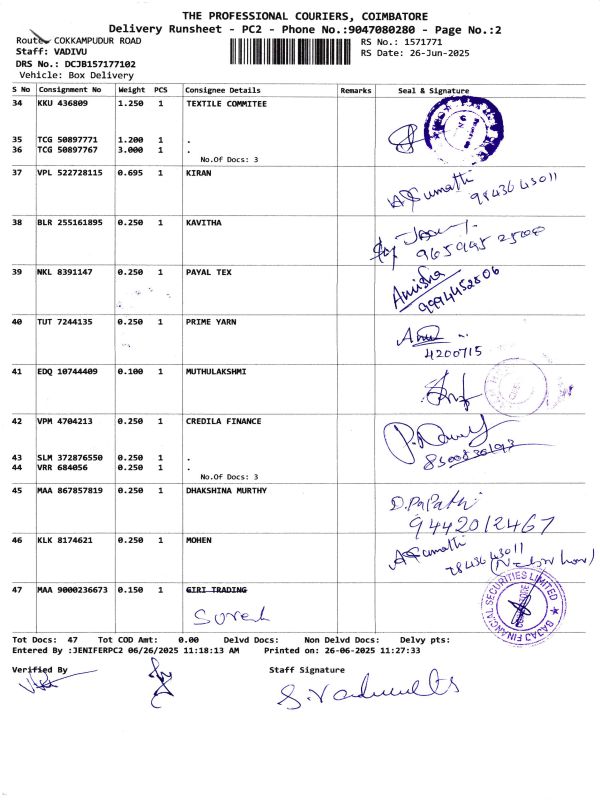 THE PROFESSIONAL COURIERS, COIMBATORE
Delivery Runsheet - PC2 - Phone No.:9047080280 - Page No.:2
Route: COKKAMPUDUR ROAD
RS No.: 1571771
Staff: VADIVU
RS Date: 26-Jun-2025
DRS No.: DCJB157177102
Vehicle: Box Delivery
S No Consignment No Weight PCS Consignee Details Remarks Seal & Signature
34 KKU 436809 1.250 1 TEXTILE COMMITEE
35 TCG 50897771 1.200 1 .
36 TCG 50897767 3.000 1 .
No.Of Docs: 3
37 VPL 522728115 0.695 1 KIRAN
9843643011
38 BLR 255161895 0.250 1 KAVITHA
39 NKL 8391147 0.250 1 PAYAL TEX
Anusha
9994452506
40 TUT 7244135 0.250 1 PRIME YARN
4200715
41 EDQ 10744409 0.100 1 MUTHULAKSHMI
42 VPM 4704213 0.250 1 CREDILA FINANCE
43 SLM 372876550 0.250 1 .
44 VRR 684056 0.250 1 .
No.Of Docs: 3
45 MAA 867857819 0.250 1 DHAKSHINA MURTHY
D.Papathi
9442012467
46 KLK 8174621 0.250 1 MOHEN
9843643011
47 MAA 9000236673 0.150 1 GIRI TRADING
Suresh
BAJAJ FINANCIAL SECURITIES LIMITED
Tot Docs: 47 Tot COD Amt: 0.00 Delvd Docs: Non Delvd Docs: Delvy pts:
Entered By :JENIFERPC2 06/26/2025 11:18:13 AM Printed on: 26-06-2025 11:27:33
Verified By Staff Signature